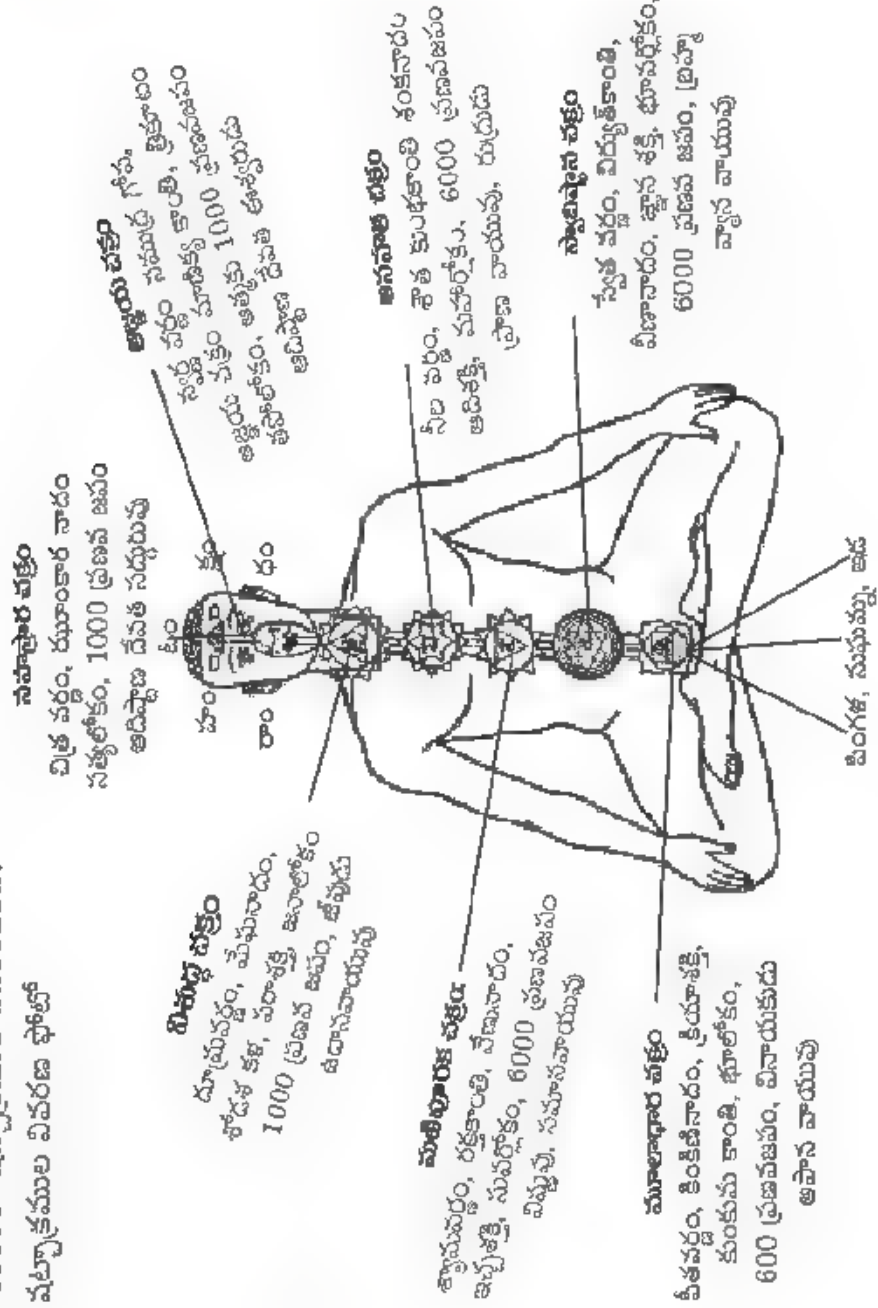 షట్చాక్రముల వివరణ ఫోటో
సహస్రార చక్రం
చిత్ర వర్ణం, ఝాంకార నాదం
సత్యలోకం, 1000 ప్రణవ జపం
అదిష్టాణ దేవత సద్గురువు
ఓం
హం
క్షం
రాం
ధం
ఆజ్ఞేయ చక్రం
వర్ణం సముద్ర గోష,
ఆజ్ఞేయ చక్రం మాణిక్య కాంతి, త్రికూటం
తపోలోకం, ఆత్మకు 1000 ప్రణవజపం
అదిష్టాణ దేవత ఈశ్వరుడు
విశుద్ధ చక్రం
దూమ్రవర్ణం, మేఘనాదం,
శోడశ కళ, పరాశక్తి జనాలోకం
1000 ప్రణవ జపం, జీవుడు
ఉదానవాయువు
అనహత చక్రం
నీల వర్ణం, శాత కుంభకాంతి శంకనాదం
ఆదిశక్తి, మహర్లోకం, 6000 ప్రణవజపం
ప్రాణ వాయువు, రుద్రుడు
మణిపూరక చక్రం
శ్యామవర్ణం, రక్తకాంతి, వేణునాదం,
ఇచ్ఛశక్తి, సువర్లోకం, 6000 ప్రణవజపం
విష్ణువు, సమానవాయువు
స్వాదిష్టాన చక్రం
స్వేత వర్ణం, విద్యుత్‌కాంతి,
వీణానాదం, జ్ఞాన శక్తి, భూవర్లోకం,
6000 ప్రణవ జపం, బ్రహ్మ
వ్యాన వాయువు
మూలాధార చక్రం
పీతవర్ణం, కింకిణినాదం, క్రియాశక్తి,
కుంకుమ కాంతి, భూలోకం,
600 ప్రణవజపం, వినాయకుడు
అపాన వాయువు
పింగళ, సుషుమ్న, ఇడ